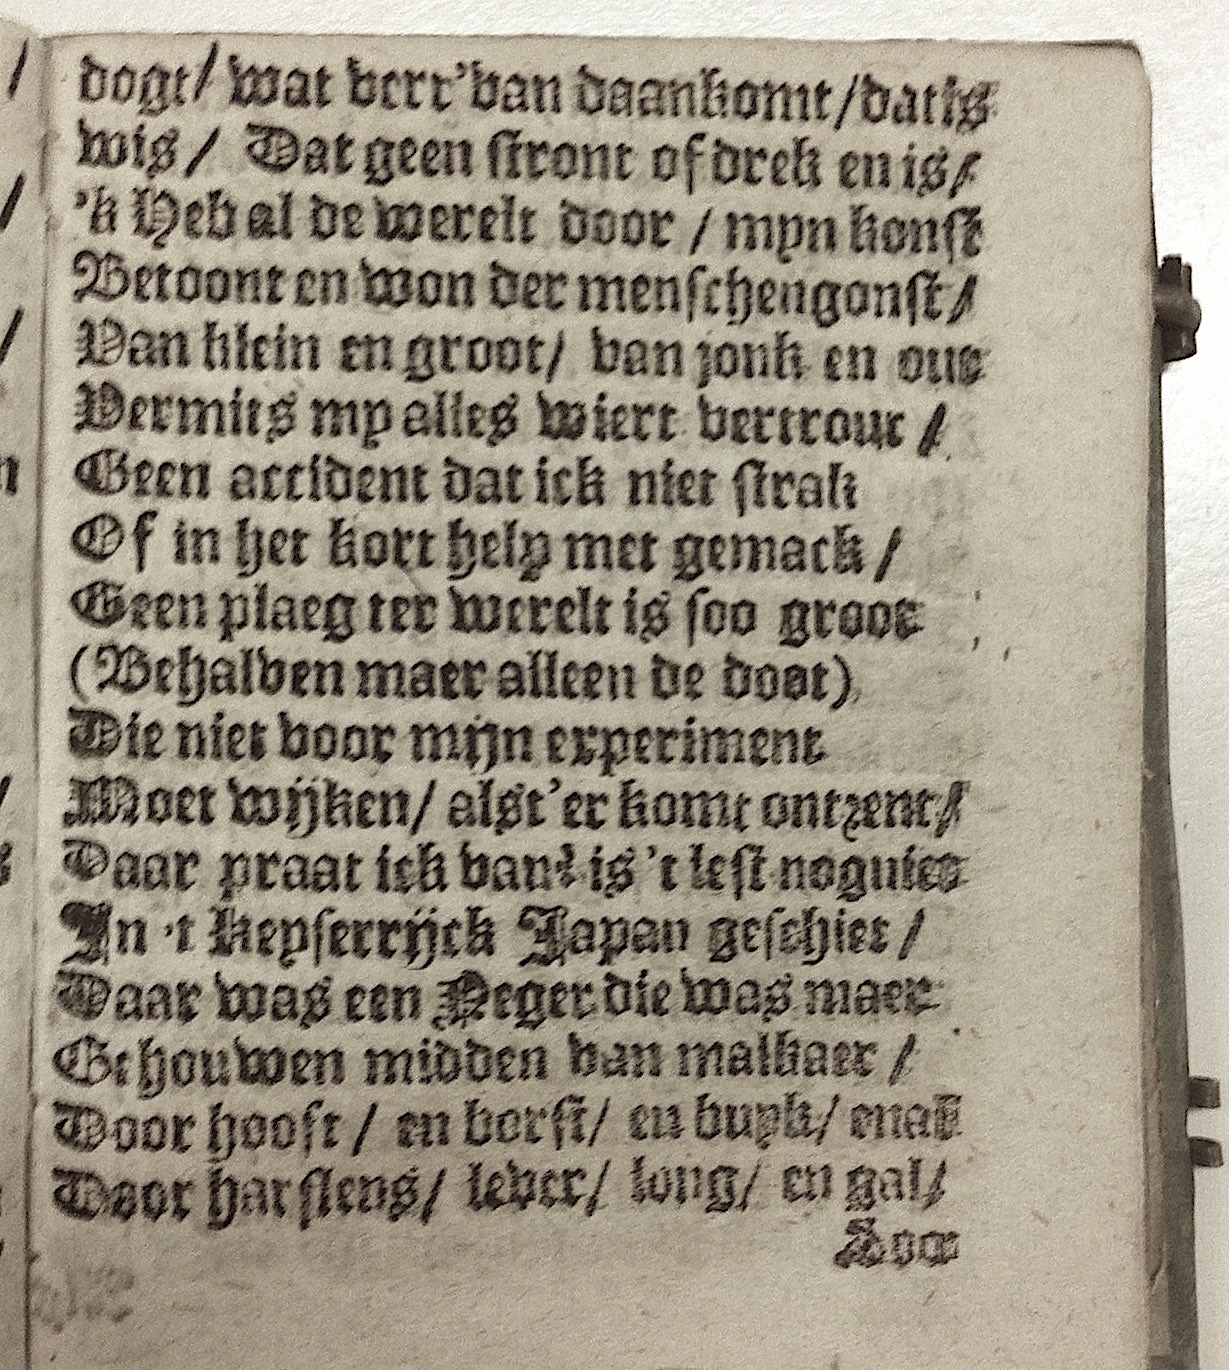 dogt/ wat verr' van daankomt/ dat is
wis/ Dat geen stront of drek en is/
'k Heb al de werelt door / myn konst
Betoont en won der menschen gonst/
Van klein en groot/ van jonk en out
Vermits my alles wiert vertrout /
Geen accident dat ick niet strak
Of in het kort help met gemack /
Geen plaeg ter werelt is soo groot
(Behalven maer alleen de doot)
Die niet voor mijn experiment
Moet wijken/ alst'er komt ontzent/
Daar praat ick van? is 't lest nog niet
In 't Keyserrijck Japan geschiet /
Daar was een Neger die was maer
Gehouwen midden van malkaer /
Door hooft / en borst/ en buyk/ en al
Door harslens/ lever/ long/ en gal/